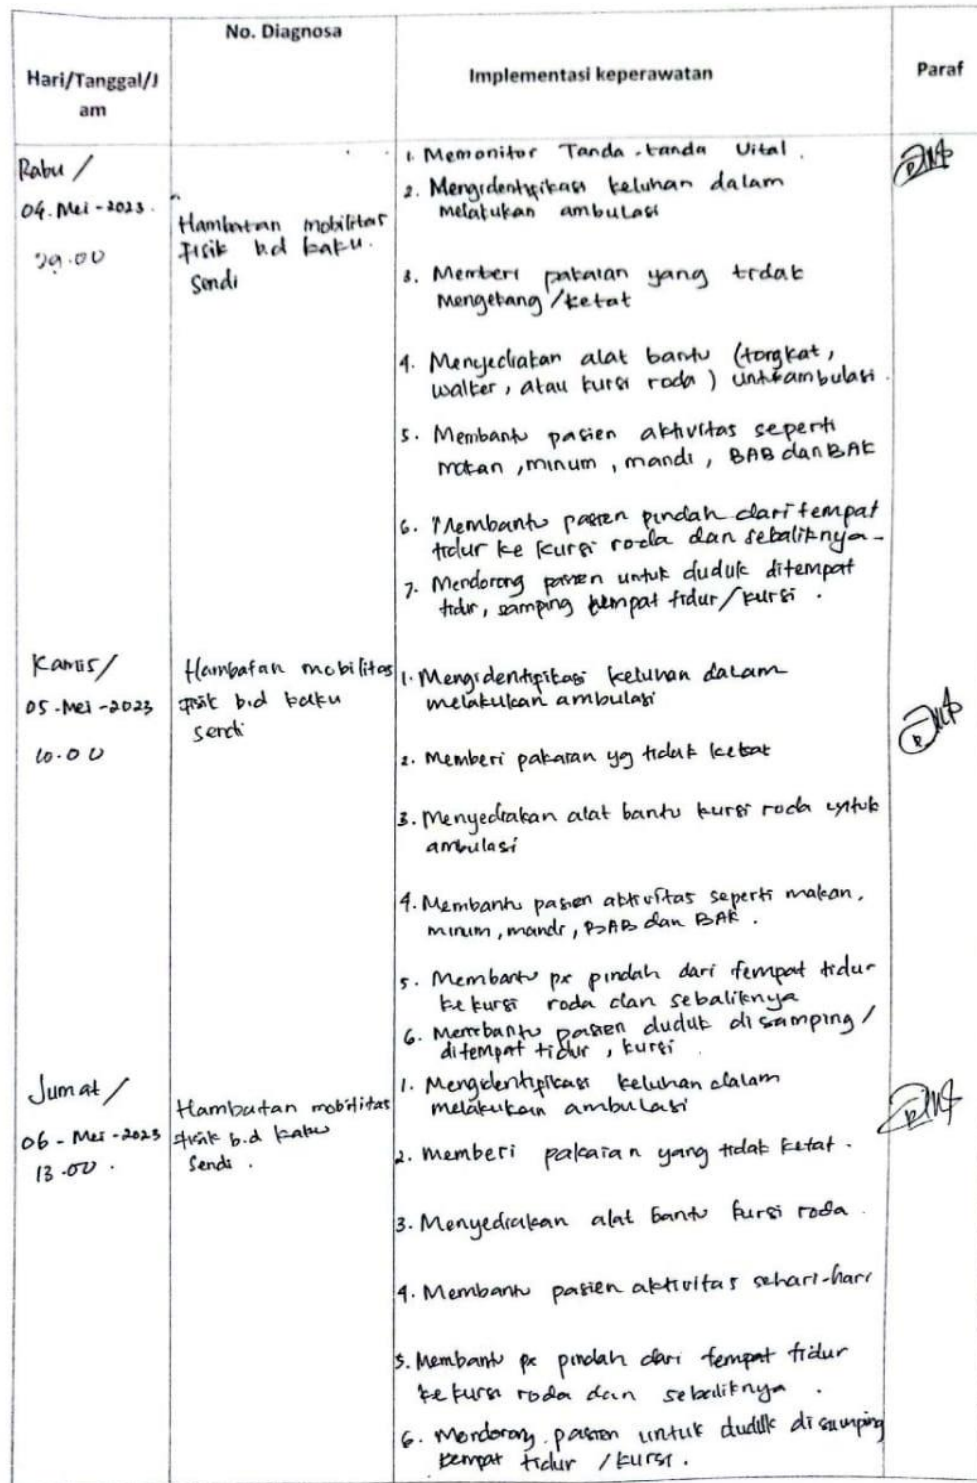 No. Diagnosa
Hari/Tanggal/J
am
Implementasi keperawatan
Paraf
Rabu /
04. Mei - 2023.
Hambatan mobilitas
fisik b.d kaku.
Sendi
1. Memonitor Tanda-tanda Vital.
2. Mengidentifikasi keluhan dalam
melakukan ambulasi
3. Memberi pakaian yang tidak
Mengekang/ketat
4. Menyediakan alat bantu (tongkat,
walker, atau kursi roda) untuk ambulasi.
5. Membantu pasien aktivitas seperti
makan, minum, mandi, BAB dan BAK
6. Membantu pasien pindah dari tempat
tidur ke kursi roda dan sebaliknya -
7. Mendorong pasien untuk duduk ditempat
tidur, samping tempat tidur/kursi.
Kamis/
05-Mei-2023
10.00
Hambatan mobilitas
fisik b.d kaku
sendi
1. Mengidentifikasi keluhan dalam
melakukan ambulasi
2. Memberi pakaian yg tidak ketat
3. Menyediakan alat bantu kursi roda untuk
ambulasi
4. Membantu pasien aktivitas seperti makan,
minum, mandi, BAB dan BAK.
5. Membantu px pindah dari tempat tidur
ke kursi roda dan sebaliknya
6. Membantu pasien duduk di samping/
ditempat tidur, kursi.
Jumat/
06-Mei-2023
13.00.
Hambatan mobilitas
fisik b.d kaku
Sendi.
1. Mengidentifikasi keluhan dalam
melakukan ambulasi
2. Memberi pakaian yang tidak ketat.
3. Menyediakan alat bantu kursi roda.
4. Membantu pasien aktivitas sehari-hari
5. Membantu px pindah dari tempat tidur
ke kursi roda dan sebaliknya.
6. Mendorong pasien untuk duduk di samping
tempat tidur / kursi.